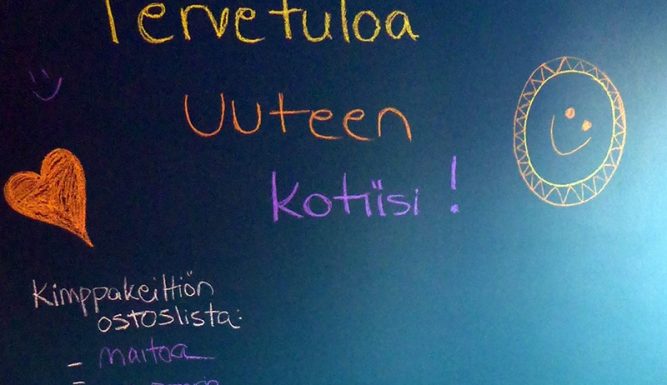 Tervetuloa
Uuteen
Kotiisi!
Kimppakeittiön
ostoslista:
- maitoa